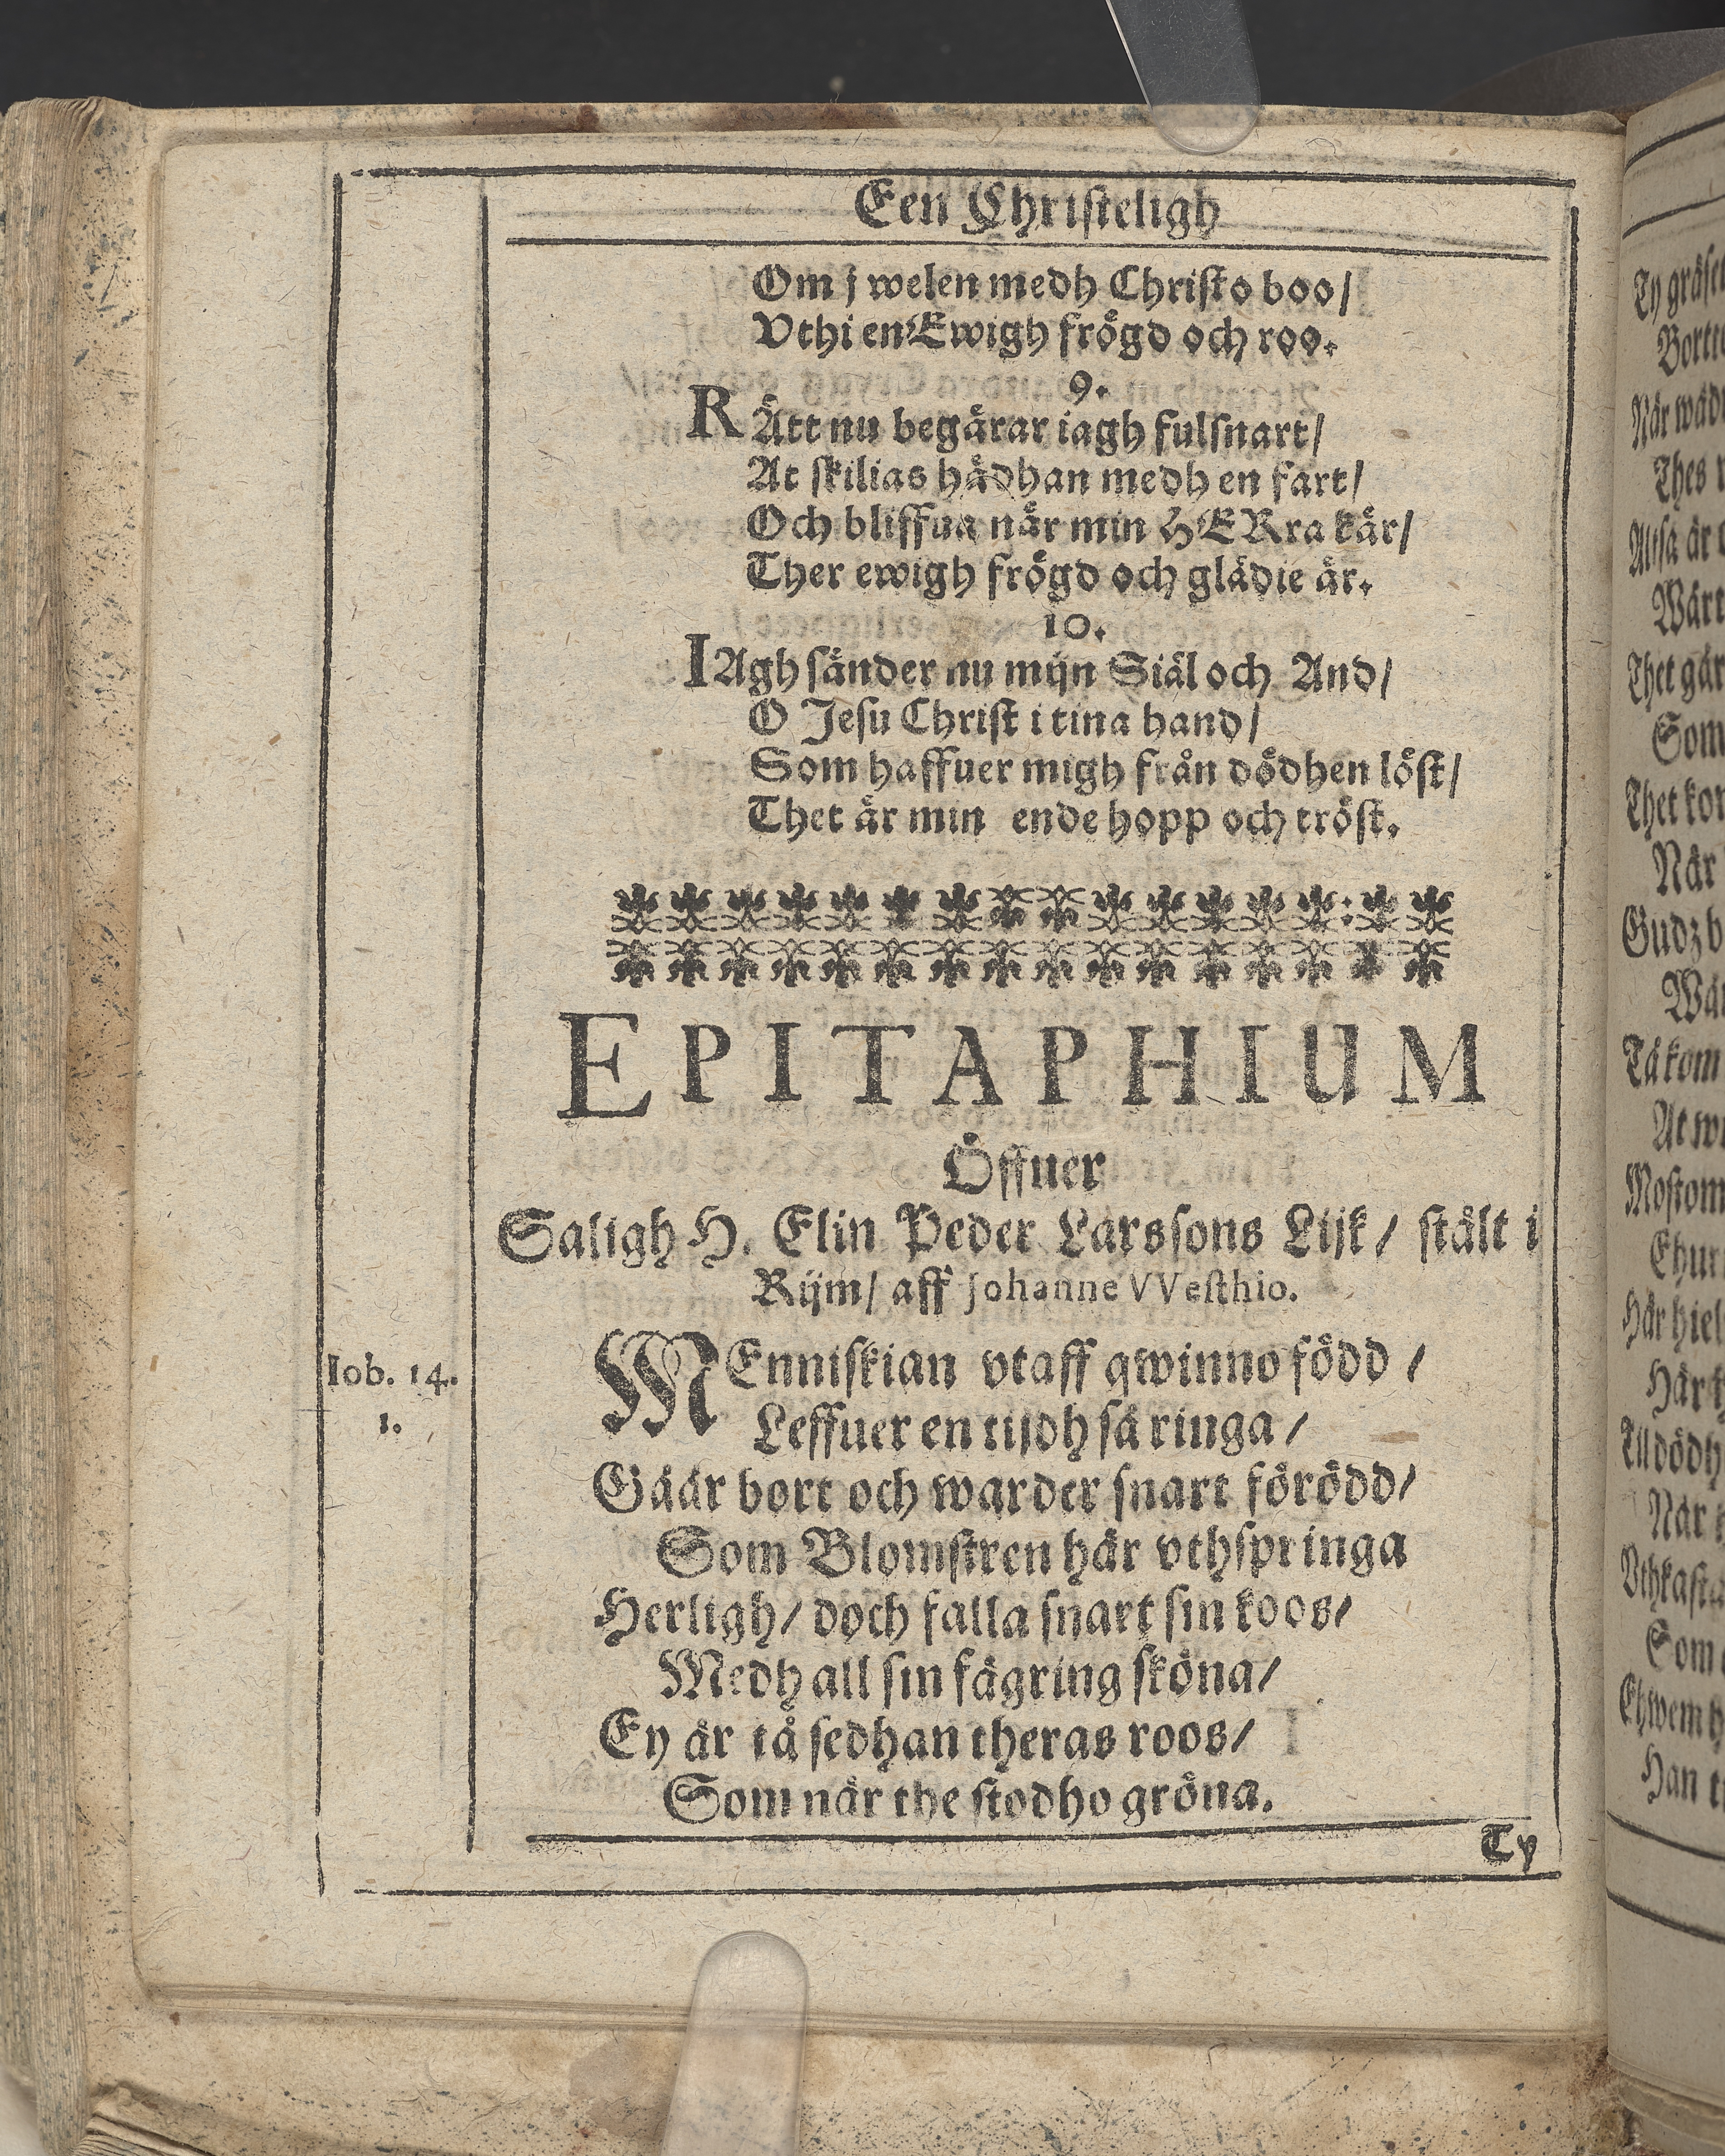 Een Christeligh
Om j welen medh Christo boo/
Vthi en Ewigh frögd och roo.
9.
RÄtt nu begärar iagh fulsnart/
At skilias hädhan medh en fart/
Och bliffua när min HERra kär/
Ther ewigh frögd och glädie är.
10.
IAgh sänder nu mijn Siäl och And/
O Jesu Christ i tina hand/
Som haffuer migh från dödhen löst/
Thet är min ende hopp och tröst.
EPITAPHIUM
Öffuer
Saligh H. Elin Peder Larssons Lijk/ stält i
Rijm/ aff Johanne VVesthio.
Iob. 14.
1.
MEnniskian vtaff qwinno född/
Leffuer en tijdh så ringa/
Gåår bort och warder snart förödd/
Som Blomstren här vthspringa
Herligh/ doch falla snart sin koos/
Medh all sin fägring sköna/
Ey är tå sedhan theras roos/
Som när the stodho gröna.
Ty
Ty
Bortt
När
Thes
Altså är
Wårt
Thet går
Som
Thet
När
Gudz
Tå kom
At
Här
Här
När
Som
Han